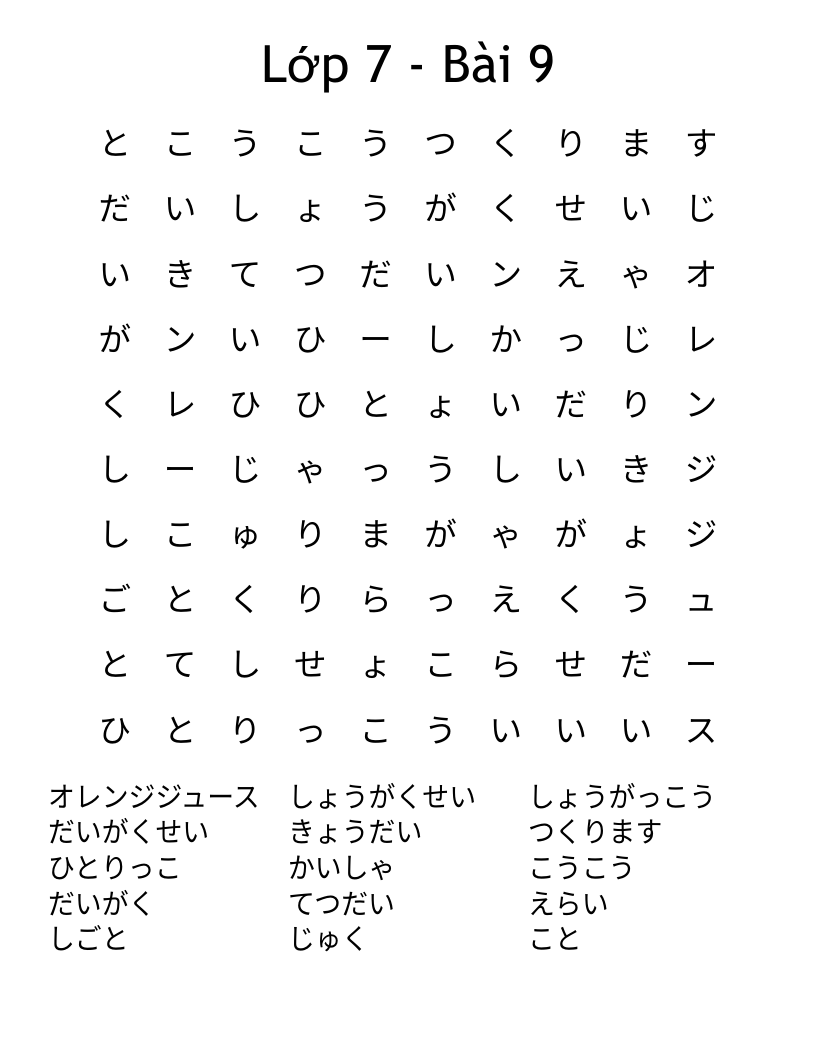 Lớp 7 - Bài 9
と こ う こ う つ く り ま す
だ い し ょ う が く せ い じ
い き て つ だ い ン え ゃ オ
が ン い ひ ー し か っ じ レ
く レ ひ ひ と ょ い だ り ン
し ー じ ゃ っ う し い き ジ
し こ ゅ り ま が ゃ が ょ ジ
ご と く り ら っ え く う ュ
と て し せ ょ こ ら せ だ ー
ひ と り っ こ う い い い ス
オレンジジュース しょうがくせい しょうがっこう
だいがくせい きょうだい つくります
ひとりっこ かいしゃ こうこう
だいがく てつだい えらい
しごと じゅく こと